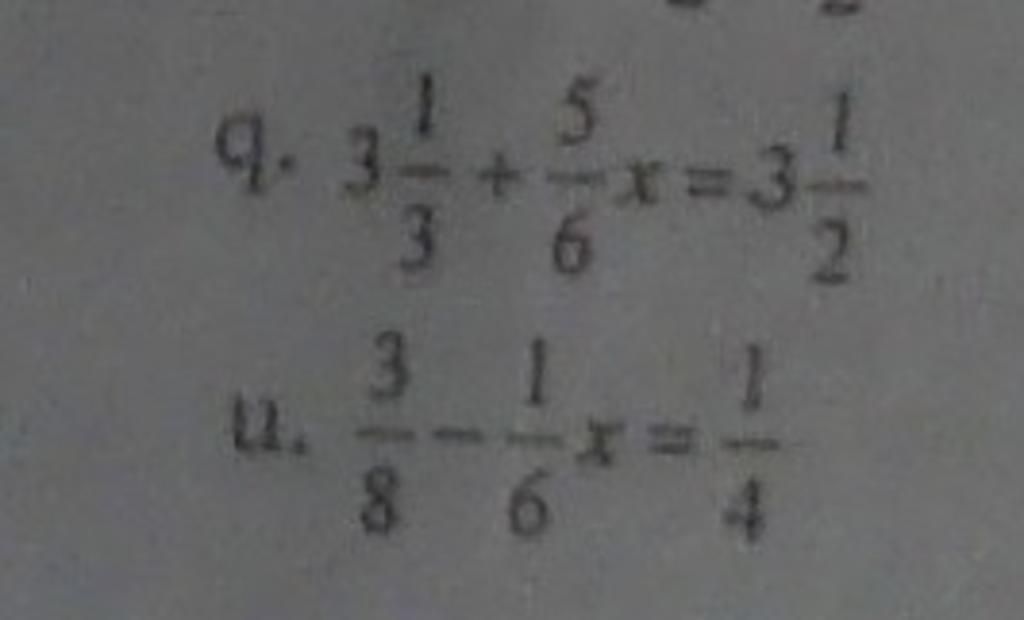 q. 3 1/3 + 5/6 x = 3 1/2
u. 3/8 - 1/6 x = 1/4